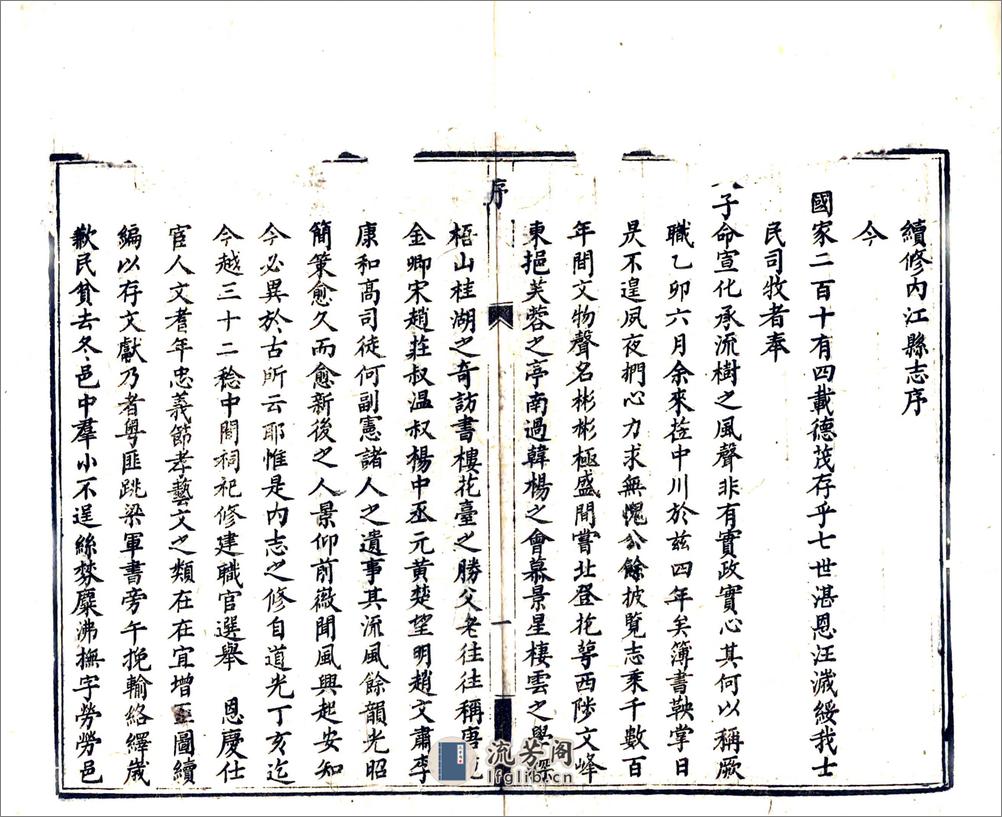 續修內江縣志序
今
國家二百十有四載德茂存乎七世湛恩汪濊綏我士
民司牧者奉
子命宣化承流樹之風聲非有實政實心其何以稱厥
職乙卯六月余來莅中川於兹四年矣簿書鞅掌日
昃不遑夙夜捫心力求無愧公餘披覽志乘千數百
年間文物聲名彬彬極盛間嘗北登挖蕚西陟文峰
東挹芙蓉之亭南過韓楊之會慕景星棲雲之學探
序
一
梧山桂湖之奇訪書樓花臺之勝父老往往稱唐
金卿宋趙莊叔温叔楊中丞元黄楚望明趙文肅李
康和高司徒何副憲諸人之遺事其流風餘韻光昭
簡策愈久而愈新後之人景仰前徽聞風興起安知
今必異於古所云耶惟是內志之修自道光丁亥迄
今越三十二稔中閒祠祀修建職官選舉 恩慶仕
宦人文耆年忠義節孝藝文之類在在宜增亟圖續
編以存文獻乃者粵匪跳梁軍書旁午挽輸絡繹歲
歉民貧去冬邑中羣小不逞絲棼麋沸撫字勞勞邑
流芳阁
lfglib.cn